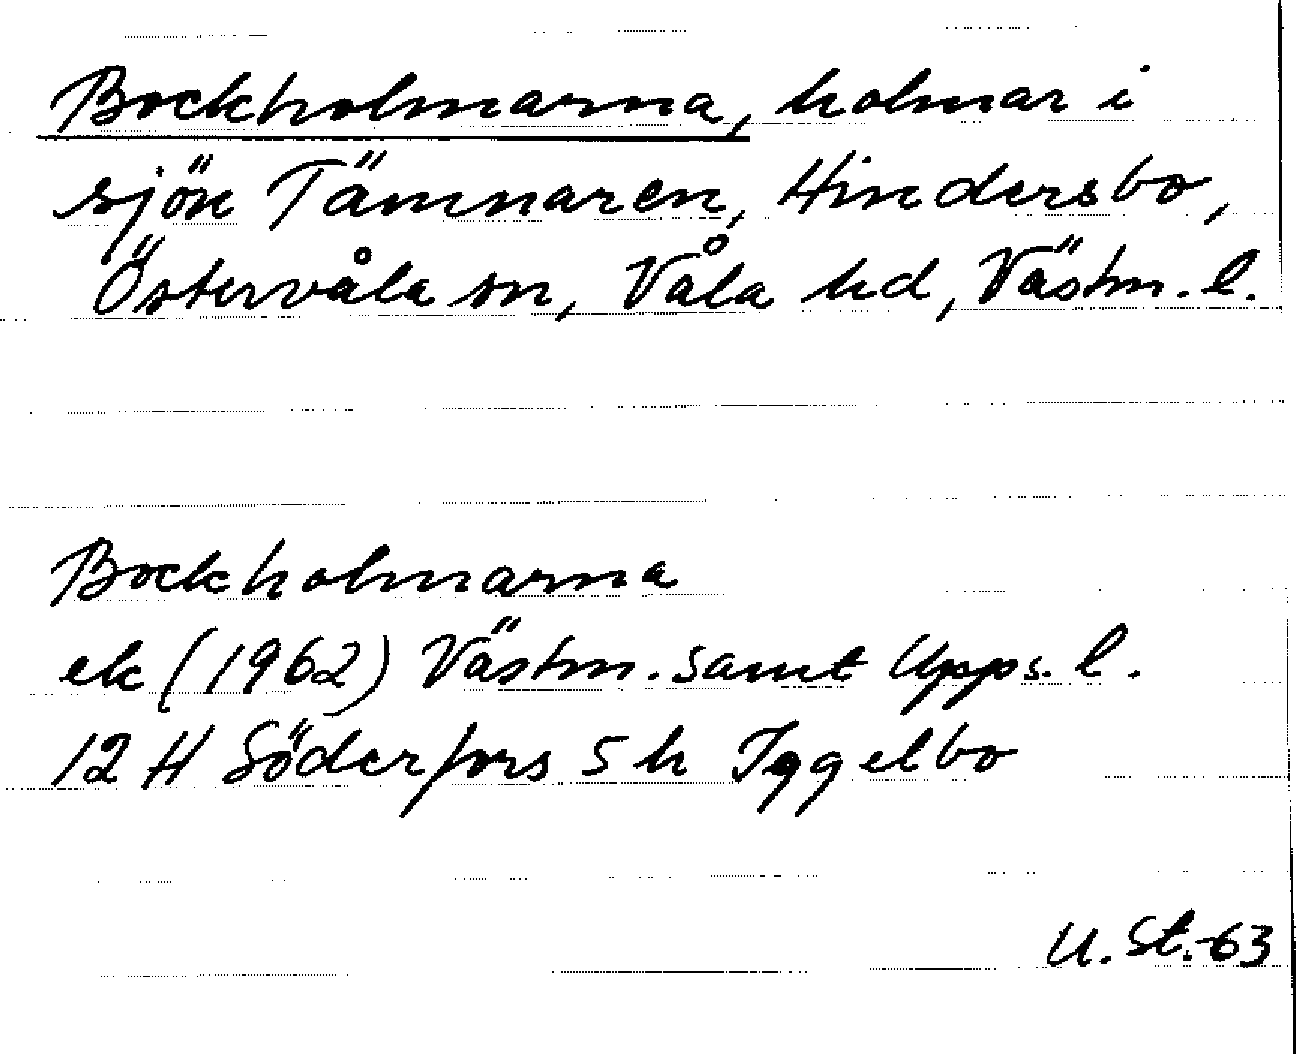 Bockholmarna, holmar i
sjön Tämnaren, Hindersbo,
Östervåla sn, Våla hd, Västm. l.
Bockholmarna
ek (1962) Västm. samt Upps. l.
12 H Söderfors 5 h Iggelbo
U. St.-63